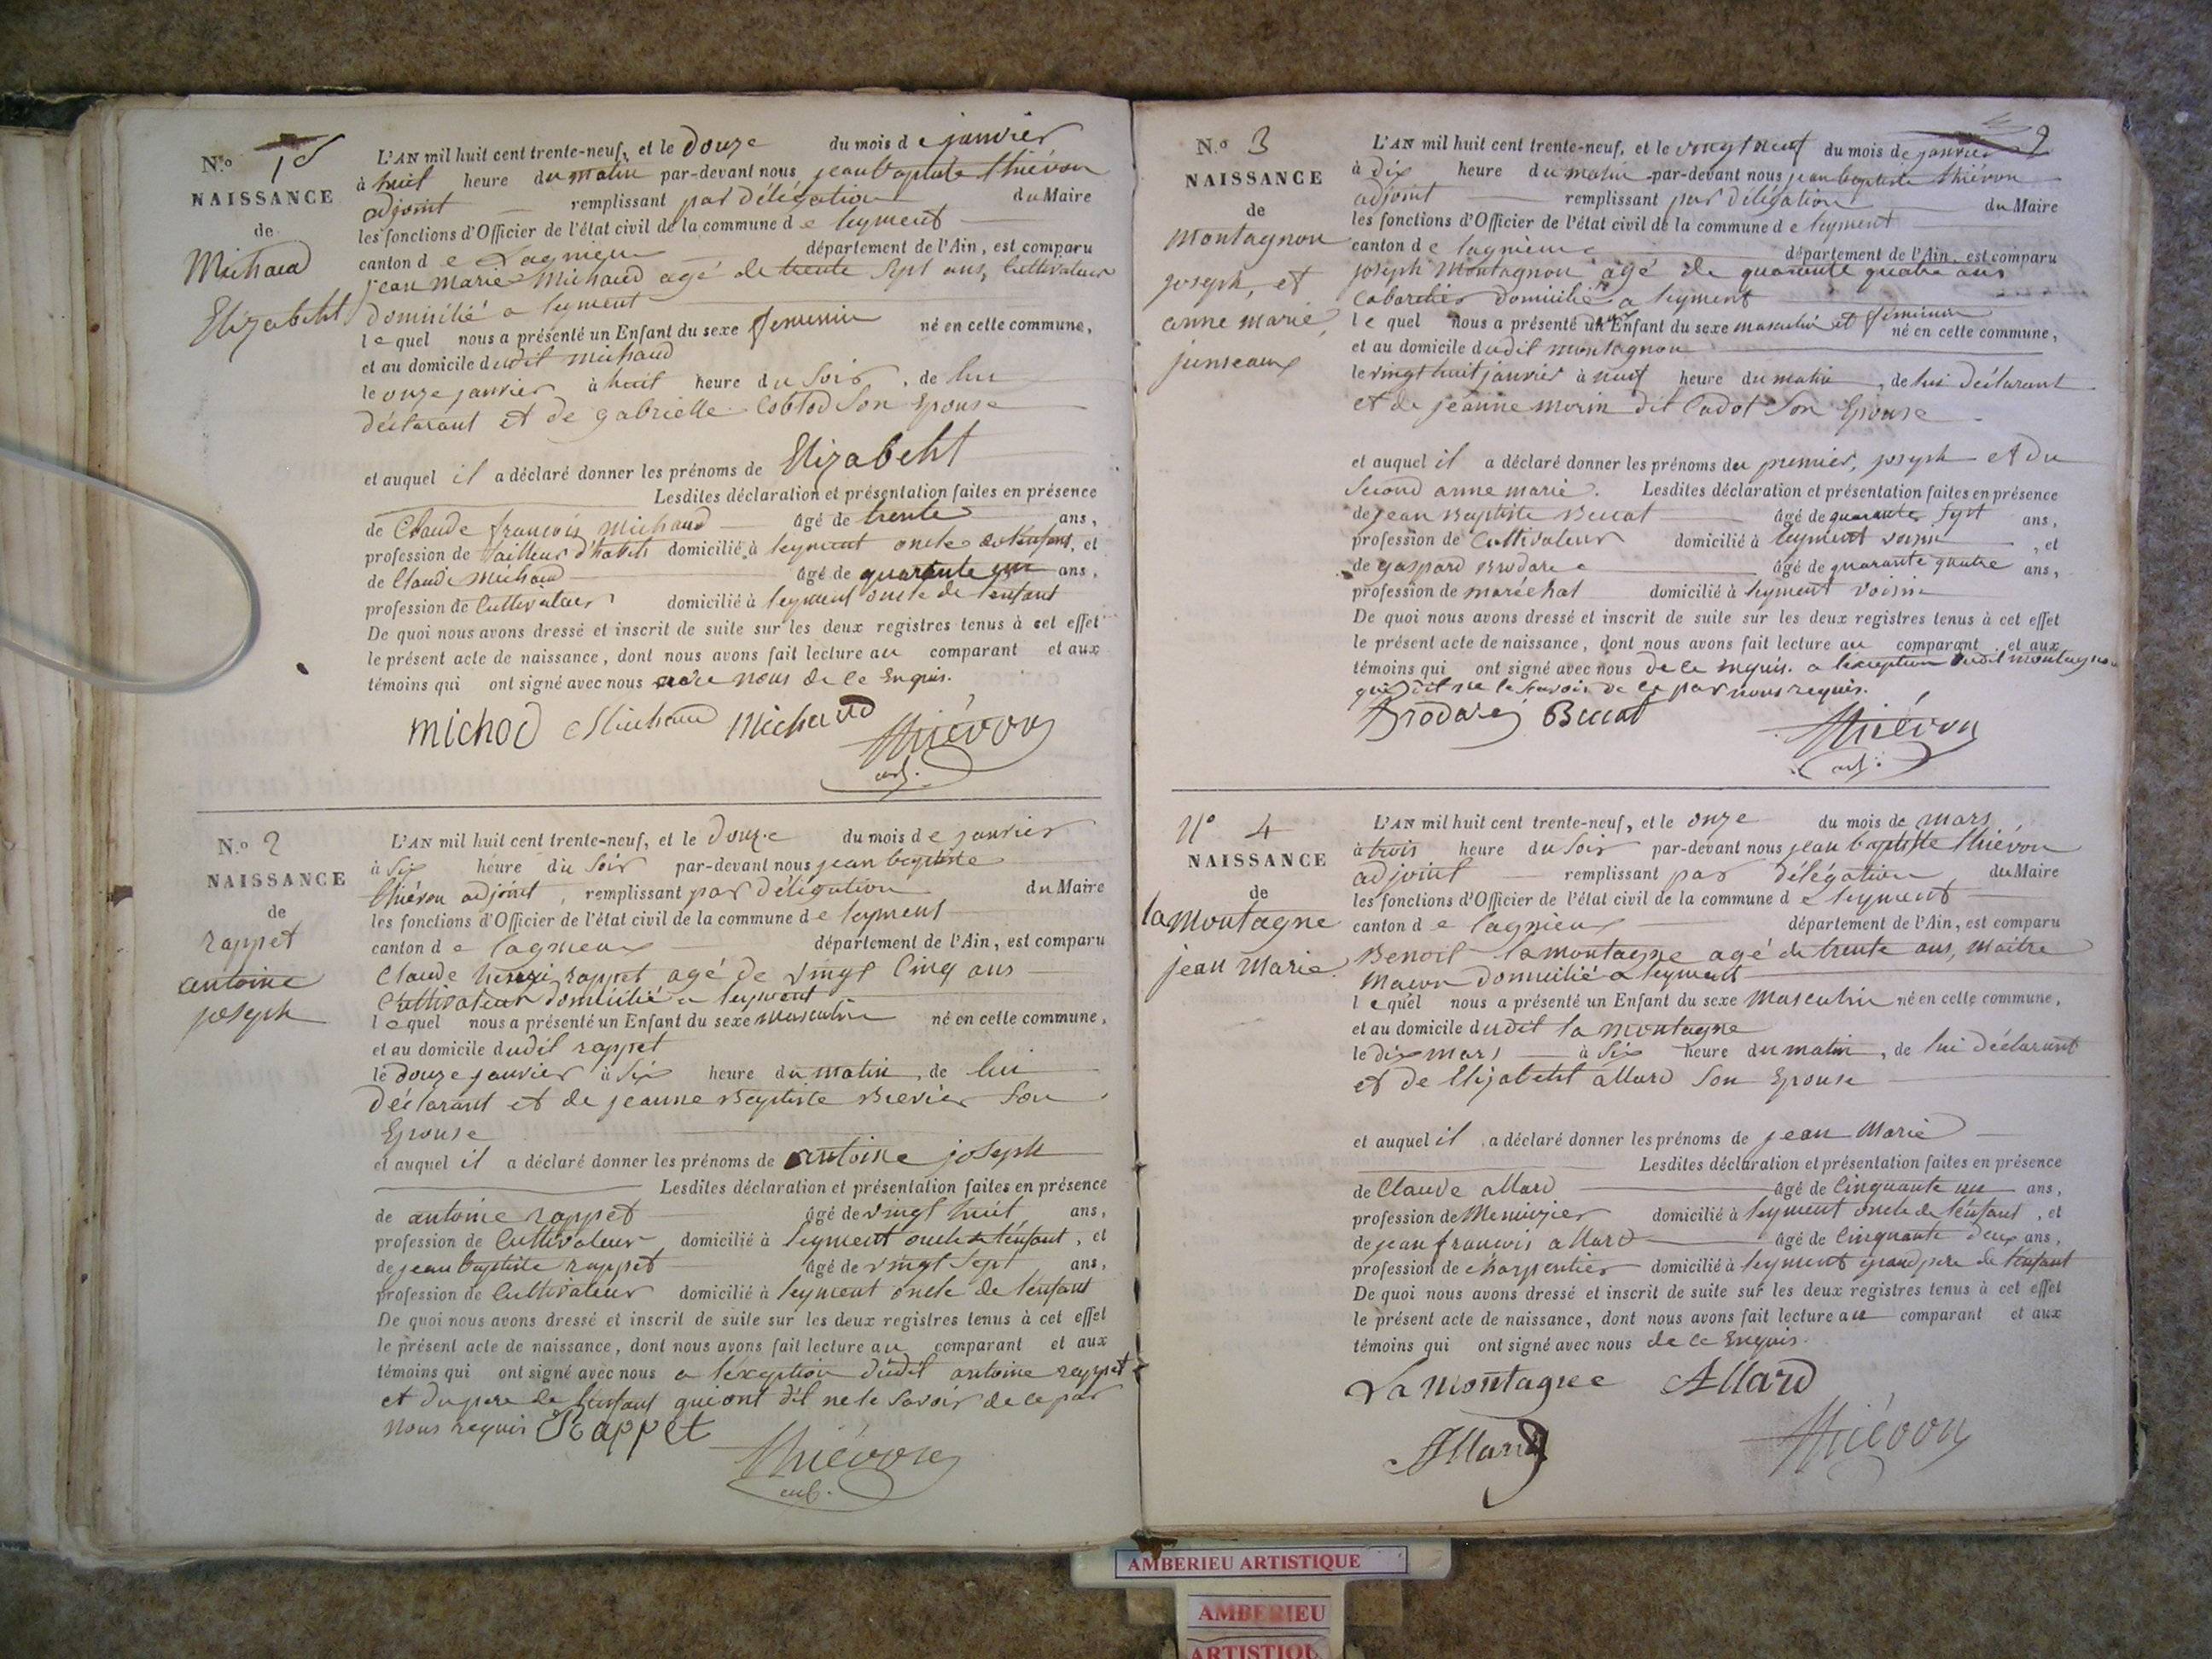 N.o 1er
NAISSANCE
de
Michaud
Elizabeht
L'AN mil huit cent trente-neuf, et le douze du mois de janvier
à huit heure du matin par-devant nous jean baptiste thiévon
adjoint remplissant par délégation du Maire
les fonctions d'Officier de l'état civil de la commune de leyment
canton de Lagnieu département de l'Ain, est comparu
jean marie Michaud agé de trente sept ans, cultivateur
domicilié a leyment
lequel nous a présenté un Enfant du sexe feminin né en cette commune,
et au domicile dudit michaud
le onze janvier à huit heure du soir, de lui
déclarant et de gabrielle son Epouse
et auquel il a déclaré donner les prénoms de Elizabeht
Lesdites déclaration et présentation faites en présence
de Claude françois Michaud âgé de trente ans,
profession de tailleur d'habits domicilié à leyment oncle de l'enfant, et
de Claude michaud âgé de quarante un ans,
profession de Cultivateur domicilié à leyment oncle de l'enfant
De quoi nous avons dressé et inscrit de suite sur les deux registres tenus à cet effet
le présent acte de naissance, dont nous avons fait lecture au comparant et aux
témoins qui ont signé avec nous nous de ce Enquis.
michod Michaud Michaud thiévon
adj.
N.o 2
NAISSANCE
de
rappet
antoine
joseph
L'AN mil huit cent trente-neuf, et le douze du mois de janvier
à six heure du soir par-devant nous jean baptiste
thiévon adjoint, remplissant par délégation du Maire
les fonctions d'Officier de l'état civil de la commune de leyment
canton de lagnieux département de l'Ain, est comparu
Claude rappet agé de vingt cinq ans
Cultivateur domicilié a leyment
lequel nous a présenté un Enfant du sexe masculin né en cette commune,
et au domicile dudit rappet
le douze janvier à six heure du matin, de lui
déclarant et de jeanne Baptiste Brevier son
Epouse
et auquel il a déclaré donner les prénoms de antoine joseph
Lesdites déclaration et présentation faites en présence
de antoine rappet âgé de vingt huit ans,
profession de Cultivateur domicilié à leyment oncle de l'enfant, et
de jean baptiste rappet âgé de vingt sept ans,
profession de Cultivateur domicilié à leyment oncle de l'enfant
De quoi nous avons dressé et inscrit de suite sur les deux registres tenus à cet effet
le présent acte de naissance, dont nous avons fait lecture au comparant et aux
témoins qui ont signé avec nous a l'exception dudit antoine rappet
et du pere de l'enfant qui ont dit ne le savoir de ce par
nous requis Rappet
thiévon
adj.
N.o 3
NAISSANCE
de
Montagnon
joseph, et
anne marie,
jumeaux
2
L'AN mil huit cent trente-neuf, et le vingt neuf du mois de janvier
à dix heure du matin par-devant nous jean baptiste thiévon
adjoint remplissant par délégation du Maire
les fonctions d'Officier de l'état civil de la commune de leyment
canton de lagnieux département de l'Ain, est comparu
joseph Montagnon agé de quarante quatre ans
Cabaretier domicilié a leyment
lequel nous a présenté deux Enfant du sexe masculin et féminin né en cette commune,
et au domicile dudit montagnon
le vingt huit janvier à neuf heure du matin, de lui déclarant
et de jeanne morin dit Cadot son Epouse
et auquel il a déclaré donner les prénoms du premier, joseph et du
second anne marie. Lesdites déclaration et présentation faites en présence
de jean Baptiste Beccat âgé de quarante sept ans,
profession de Cultivateur domicilié à leyment voisin, et
de gaspard Brodare âgé de quarante quatre ans,
profession de maréchal domicilié à leyment voisin
De quoi nous avons dressé et inscrit de suite sur les deux registres tenus à cet effet
le présent acte de naissance, dont nous avons fait lecture au comparant et aux
témoins qui ont signé avec nous de ce enquis. a l'exception dudit montagnon
qui a dit ne le savoir de ce par nous requis.
Brodare Beccat
thiévon
adj.
N° 4
NAISSANCE
de
la Montagne
jean Marie
L'AN mil huit cent trente-neuf, et le onze du mois de mars
à trois heure du soir par-devant nous jean baptiste thiévon
adjoint remplissant par délégation du Maire
les fonctions d'Officier de l'état civil de la commune de leyment
canton de lagnieux département de l'Ain, est comparu
Benoit lamontagne agé de trente ans, maitre
Maçon domicilié a leyment
lequel nous a présenté un Enfant du sexe Masculin né en cette commune,
et au domicile dudit la montagne
le dix mars à six heure du matin, de lui déclarant
et de Elizabeht allard son Epouse
et auquel il a déclaré donner les prénoms de jean Marie
Lesdites déclaration et présentation faites en présence
de Claude allard âgé de Cinquante un ans,
profession de Menuizier domicilié à leyment oncle de l'enfant, et
de jean francois allard âgé de Cinquante deux ans,
profession de charpentier domicilié à leyment grand pere de l'enfant
De quoi nous avons dressé et inscrit de suite sur les deux registres tenus à cet effet
le présent acte de naissance, dont nous avons fait lecture au comparant et aux
témoins qui ont signé avec nous de ce Enquis.
La montagne Allard
Allard thiévon
AMBERIEU ARTISTIQUE
AMBERIEU
ARTISTIQU